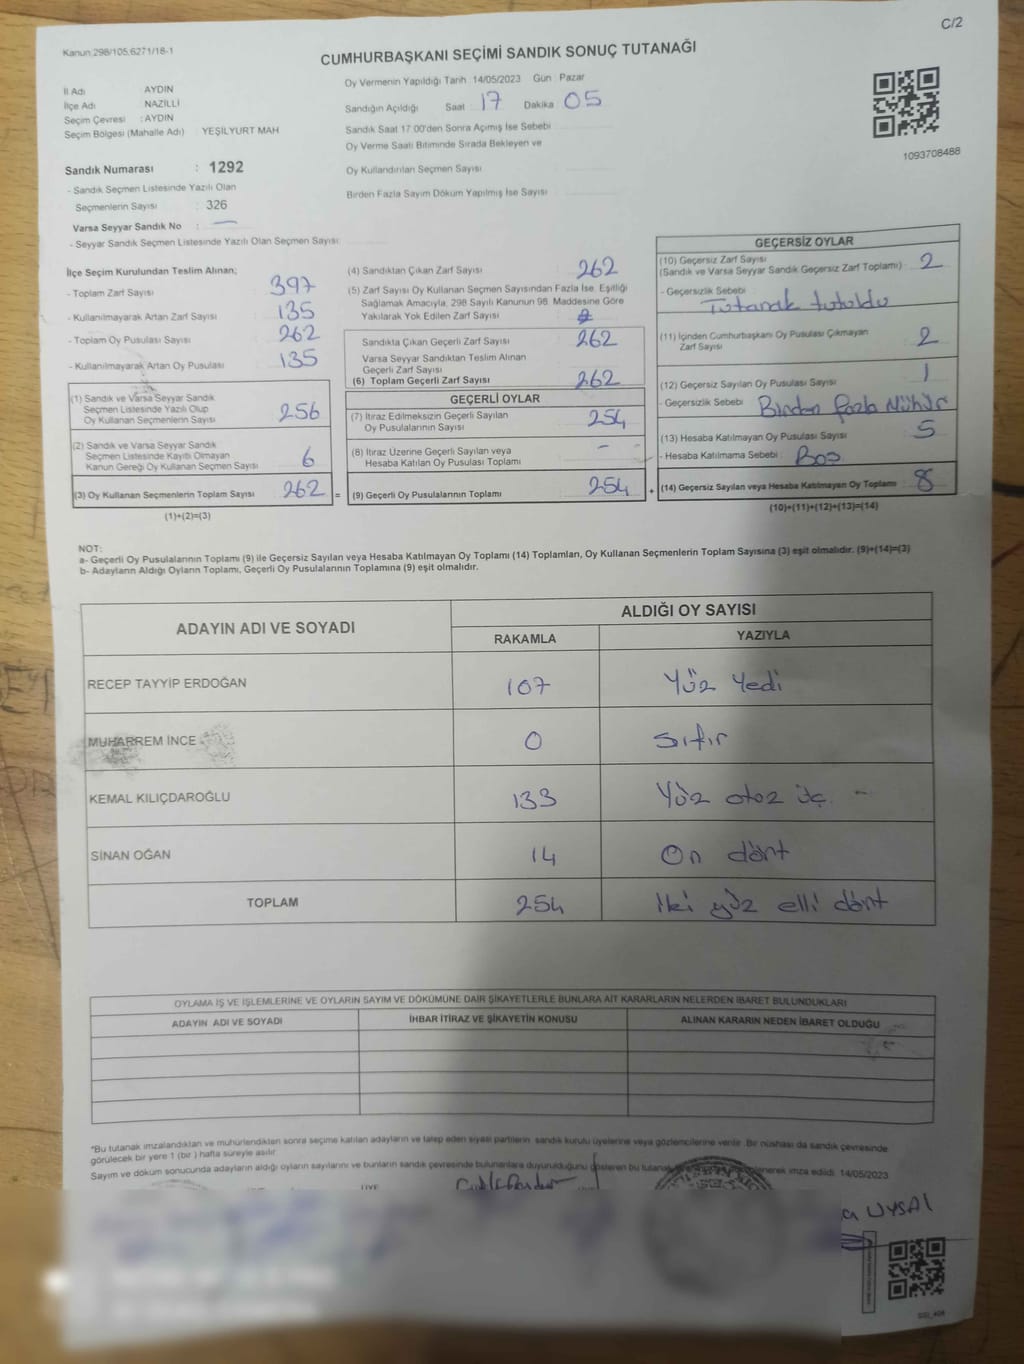 C/2
Kanun 298/105,6271/18-1
CUMHURBAŞKANI SEÇİMİ SANDIK SONUÇ TUTANAĞI
İl Adı AYDIN
İlçe Adı NAZİLLİ
Seçim Çevresi : AYDIN
Seçim Bölgesi (Mahalle Adı) : YEŞİLYURT MAH
Sandık Numarası : 1292
- Sandık Seçmen Listesinde Yazılı Olan
Seçmenlerin Sayısı : 326
Varsa Seyyar Sandık No : —
- Seyyar Sandık Seçmen Listesinde Yazılı Olan Seçmen Sayısı:
Oy Vermenin Yapıldığı Tarih 14/05/2023 Gün : Pazar
Sandığın Açıldığı Saat 17 Dakika 05
Sandık Saat 17.00'den Sonra Açılmış İse Sebebi
Oy Verme Saati Bitiminde Sırada Bekleyen ve
Oy Kullandırılan Seçmen Sayısı
Birden Fazla Sayım Döküm Yapılmış İse Sayısı
1093708488
İlçe Seçim Kurulundan Teslim Alınan;
- Toplam Zarf Sayısı 397
- Kullanılmayarak Artan Zarf Sayısı 135
- Toplam Oy Pusulası Sayısı 262
- Kullanılmayarak Artan Oy Pusulası 135
(1) Sandık ve Varsa Seyyar Sandık
Seçmen Listesinde Yazılı Olup
Oy Kullanan Seçmenlerin Sayısı 256
(2) Sandık ve Varsa Seyyar Sandık
Seçmen Listesinde Kayıtlı Olmayan
Kanun Gereği Oy Kullanan Seçmen Sayısı 6
(3) Oy Kullanan Seçmenlerin Toplam Sayısı 262 =
(1)+(2)=(3)
(4) Sandıktan Çıkan Zarf Sayısı 262
(5) Zarf Sayısı Oy Kullanan Seçmen Sayısından Fazla İse, Eşitliği
Sağlamak Amacıyla, 298 Sayılı Kanunun 98. Maddesine Göre
Yakılarak Yok Edilen Zarf Sayısı
Sandıkta Çıkan Geçerli Zarf Sayısı 262
Varsa Seyyar Sandıktan Teslim Alınan
Geçerli Zarf Sayısı
(6) Toplam Geçerli Zarf Sayısı 262
GEÇERLİ OYLAR
(7) İtiraz Edilmeksizin Geçerli Sayılan
Oy Pusulalarının Sayısı 254
(8) İtiraz Üzerine Geçerli Sayılan veya
Hesaba Katılan Oy Pusulası Toplamı –
(9) Geçerli Oy Pusulalarının Toplamı 254 +
GEÇERSİZ OYLAR
(10) Geçersiz Zarf Sayısı
(Sandık ve Varsa Seyyar Sandık Geçersiz Zarf Toplamı) : 2
- Geçersizlik Sebebi :
Tutanak tutuldu
(11) İçinden Cumhurbaşkanı Oy Pusulası Çıkmayan
Zarf Sayısı 2
(12) Geçersiz Sayılan Oy Pusulası Sayısı 1
- Geçersizlik Sebebi : Birden fazla Mühür
(13) Hesaba Katılmayan Oy Pusulası Sayısı 5
- Hesaba Katılmama Sebebi : Boş
(14) Geçersiz Sayılan veya Hesaba Katılmayan Oy Toplamı 8
(10)+(11)+(12)+(13)=(14)
NOT:
a- Geçerli Oy Pusulalarının Toplamı (9) ile Geçersiz Sayılan veya Hesaba Katılmayan Oy Toplamı (14) Toplamları, Oy Kullanan Seçmenlerin Toplam Sayısına (3) eşit olmalıdır. (9)+(14)=(3)
b- Adayların Aldığı Oyların Toplamı, Geçerli Oy Pusulalarının Toplamına (9) eşit olmalıdır.
ADAYIN ADI VE SOYADI ALDIĞI OY SAYISI
RAKAMLA YAZIYLA
RECEP TAYYİP ERDOĞAN 107 Yüz Yedi
MUHARREM İNCE 0 Sıfır
KEMAL KILIÇDAROĞLU 133 Yüz otuz üç
SİNAN OĞAN 14 On dört
TOPLAM 254 İki yüz elli dört
OYLAMA İŞ VE İŞLEMLERİNE VE OYLARIN SAYIM VE DÖKÜMÜNE DAİR ŞİKAYETLERLE BUNLARA AİT KARARLARIN NELERDEN İBARET BULUNDUKLARI
ADAYIN ADI VE SOYADI İHBAR İTİRAZ VE ŞİKAYETİN KONUSU ALINAN KARARIN NEDEN İBARET OLDUĞU
*Bu tutanak imzalandıktan ve mühürlendikten sonra seçime katılan adayların ve talep eden siyasi partilerin sandık kurulu üyelerine veya gözlemcilerine verilir. Bir nüshası da sandık çevresinde
görülecek bir yere 1 (bir) hafta süreyle asılır.
Sayım ve döküm sonucunda adayların aldığı oyların sayılarını ve bunların sandık çevresinde bulunanlara duyurulduğunu gösteren bu tutanak imza edildi. 14/05/2023
UYSAL